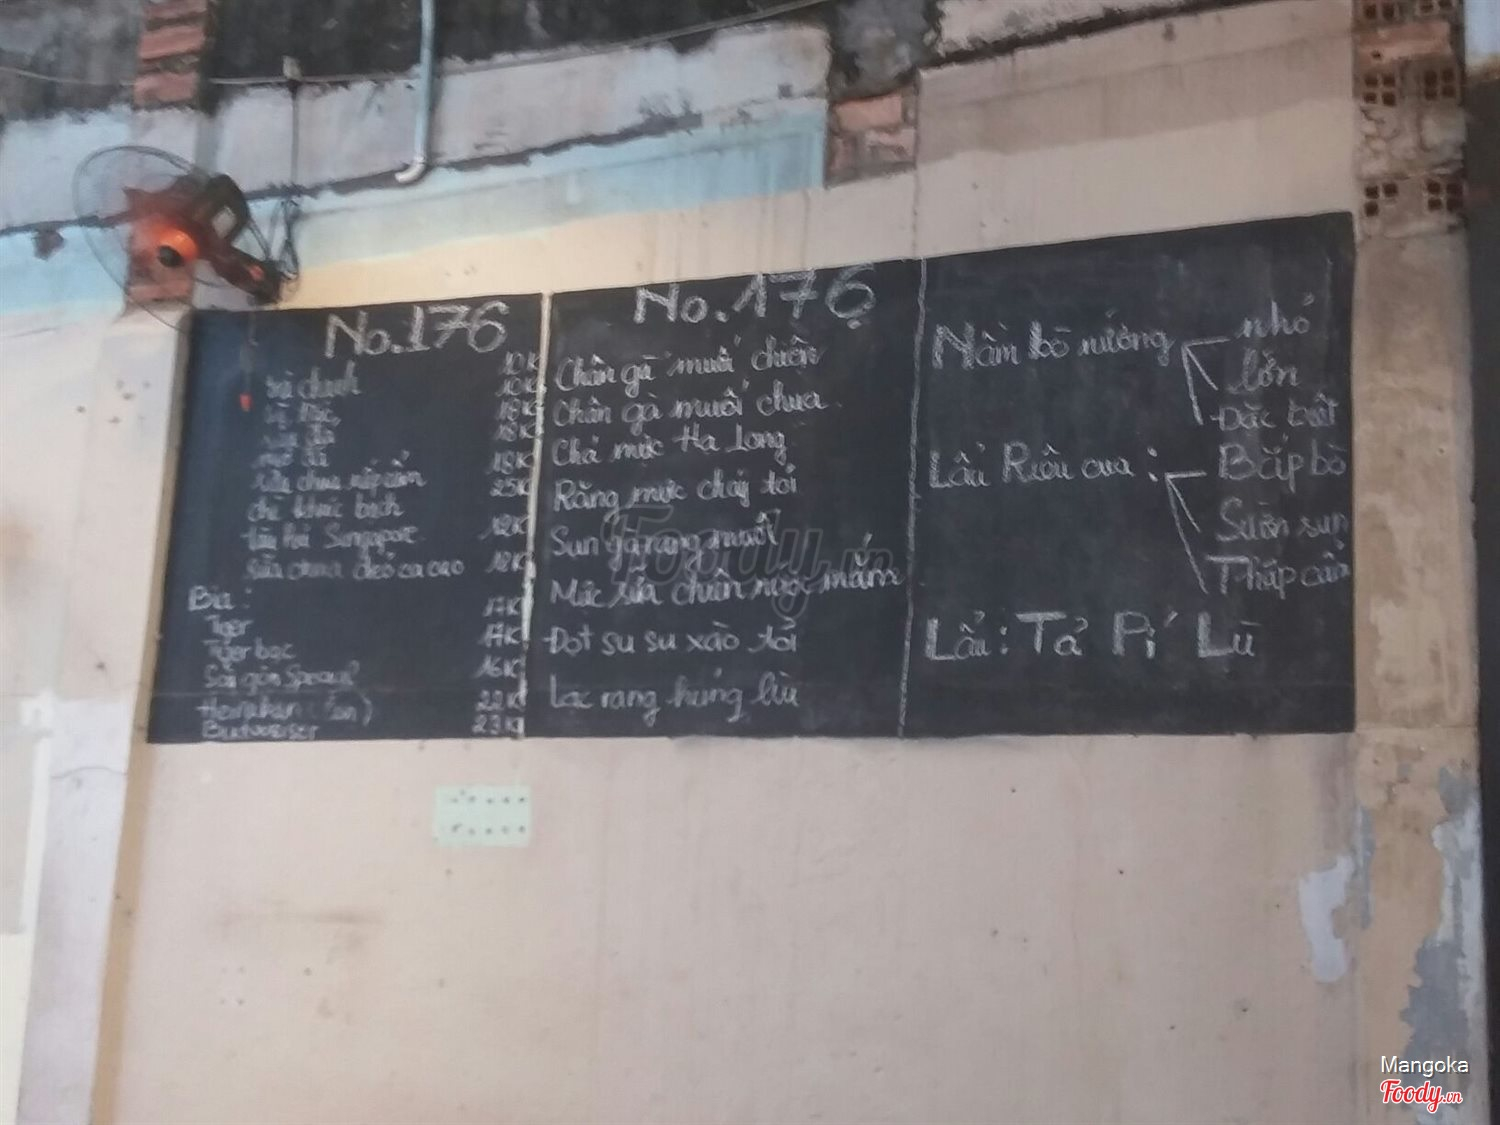 No.176
10K
trà chanh 10K
18K
18K
18K
sữa chua nếp cẩm 25K
chè khúc bạch
Singapore 12K
sữa chua dẻo ca cao 12K
Bia:
Tiger 17K
Tiger bạc 17K
Sài gòn Special 16K
Heineken (lon) 22K
Budweiser 23K
No.176
Chân gà muối chiên
Chân gà muối chua
Chả mực Hạ Long
Răng mực cháy tỏi
Sụn gà rang muối
Mực sữa chiên nước mắm
Đọt su su xào tỏi
Lạc rang húng lìu
Nầm bò nướng
nhỏ
lớn
Đặc biệt
Lẩu Riêu cua :
Bắp bò
Sườn sụn
Thập cẩm
Lẩu: Tả Pí Lù
Foody.vn
Mangoka
Foody.vn